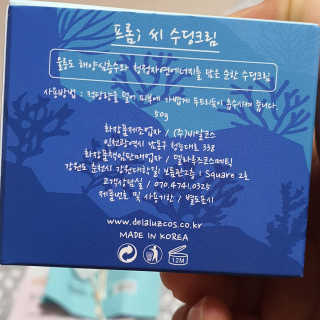 프롬; 씨 수딩크림
울릉도 해양심층수와 청정자연에너지를 담은 순한 수딩크림
사용방법 : 적당량을 덜어 피부에 가볍게 두드리듯 흡수시켜 줍니다.
50g
화장품제조업자 / (주)비알코스
인천광역시 남동구 청능대로 338
화장품책임판매업자 / 델라루즈코스메틱
강원도 춘천시 강원대학길1 보듬관2층 I Square 2호
고객상담실 / 070.4741.0325
제품번호 및 사용기한 / 별도표시
www.delaluzcos.co.kr
MADE IN KOREA
12M